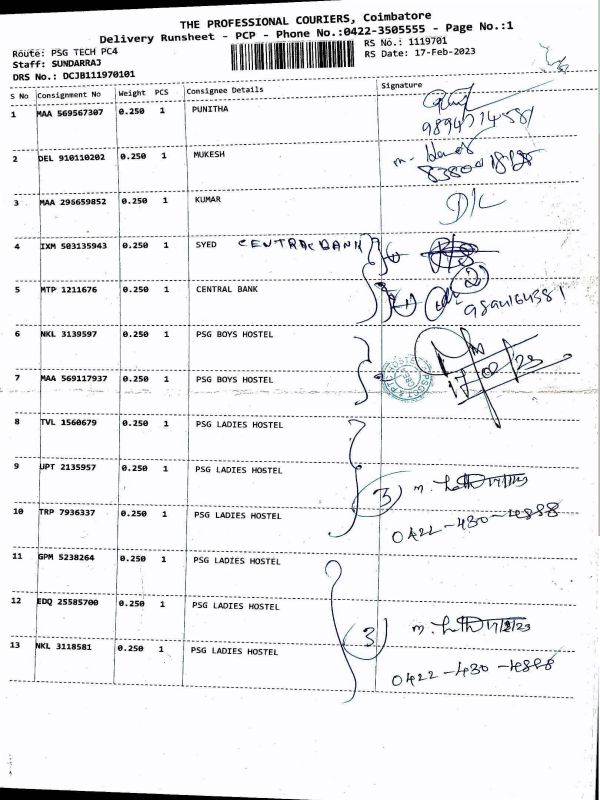 THE PROFESSIONAL COURIERS, Coimbatore
Delivery Runsheet - PCP - Phone No.:0422-3505555 - Page No.:1
Route: PSG TECH PC4
RS No.: 1119701
Staff: SUNDARRAJ
RS Date: 17-Feb-2023
DRS No.: DCJB111970101
S No Consignment No Weight PCS Consignee Details Signature
1 MAA 569567307 0.250 1 PUNITHA
2 DEL 910110202 0.250 1 MUKESH
3 MAA 296659852 0.250 1 KUMAR D/L
4 IXM 503135943 0.250 1 SYED CENTRAL BANK
5 MTP 1211676 0.250 1 CENTRAL BANK
6 NKL 3139597 0.250 1 PSG BOYS HOSTEL
7 MAA 569117937 0.250 1 PSG BOYS HOSTEL 17/02/23
8 TVL 1560679 0.250 1 PSG LADIES HOSTEL
9 UPT 2135957 0.250 1 PSG LADIES HOSTEL
3)
10 TRP 7936337 0.250 1 PSG LADIES HOSTEL 0422-430-4888
11 GPM 5238264 0.250 1 PSG LADIES HOSTEL
12 EDQ 25585700 0.250 1 PSG LADIES HOSTEL
3)
13 NKL 3118581 0.250 1 PSG LADIES HOSTEL 0422-430-4888